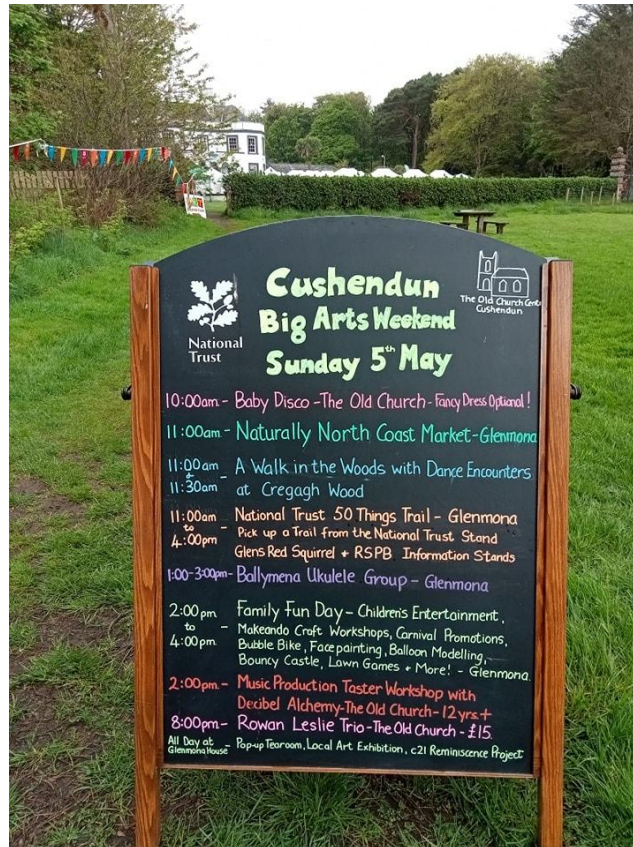 National
Trust
The Old Church Centre
Cushendun
Cushendun
Big Arts Weekend
Sunday 5th May
10:00am - Baby Disco - The Old Church - Fancy Dress Optional!
11:00am - Naturally North Coast Market - Glenmona
11:00am & 11:30am - A Walk in the Woods with Dance Encounters
at Cregagh Wood
11:00am to 4:00pm - National Trust 50 Things Trail - Glenmona
Pick up a Trail from the National Trust Stand
Glens Red Squirrel + RSPB Information Stands
1:00-3:00pm - Ballymena Ukulele Group - Glenmona
2:00pm to 4:00pm - Family Fun Day - Children's Entertainment,
Makeando Craft Workshops, Carnival Promotions,
Bubble Bike, Facepainting, Balloon Modelling,
Bouncy Castle, Lawn Games + More! - Glenmona.
2:00pm - Music Production Taster Workshop with
Decibel Alchemy - The Old Church - 12 yrs.+
8:00pm - Rowan Leslie Trio - The Old Church - £15.
All Day at Glenmona House - Pop-up Tearoom, Local Art Exhibition, c21 Reminiscence Project